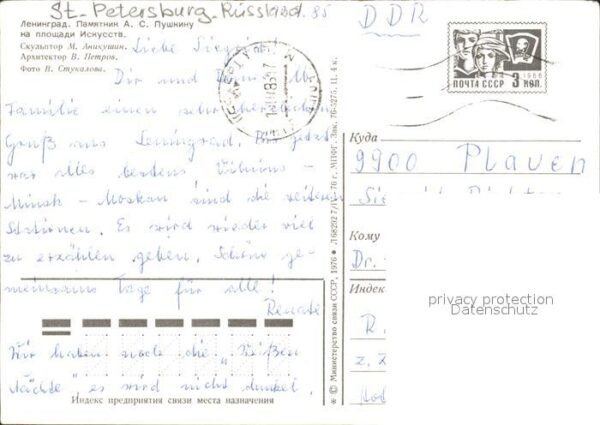 St. Petersburg Russland
85
DDR
Ленинград. Памятник А. С. Пушкину
на площади Искусств.
Скульптор М. Аникушин.
Архитектор В. Петров.
Фото В. Стукалова.
Liebe
Dir und Deiner lb.
Familie einen sehr herzlichen
Gruß aus Leningrad. Bis jetzt
war alles bestens. Vilnius -
Minsk - Moskau sind die weiteren
Stationen. Es wird wieder viel
zu erzählen geben. Schöne ge-
meinsame Tage für alle!
Renate
Wir haben noch die „Weißen
Nächte" es wird nicht dunkel.
Индекс предприятия связи места назначения
© Министерство связи СССР, 1976
МПФГ. Зак. 76-5275. Ц. 4 к.
1966
ПОЧТА СССР 3 КОП.
Куда
9900 Plauen
Кому
Dr.
Индекс
R.
z. Z.
privacy protection
Datenschutz